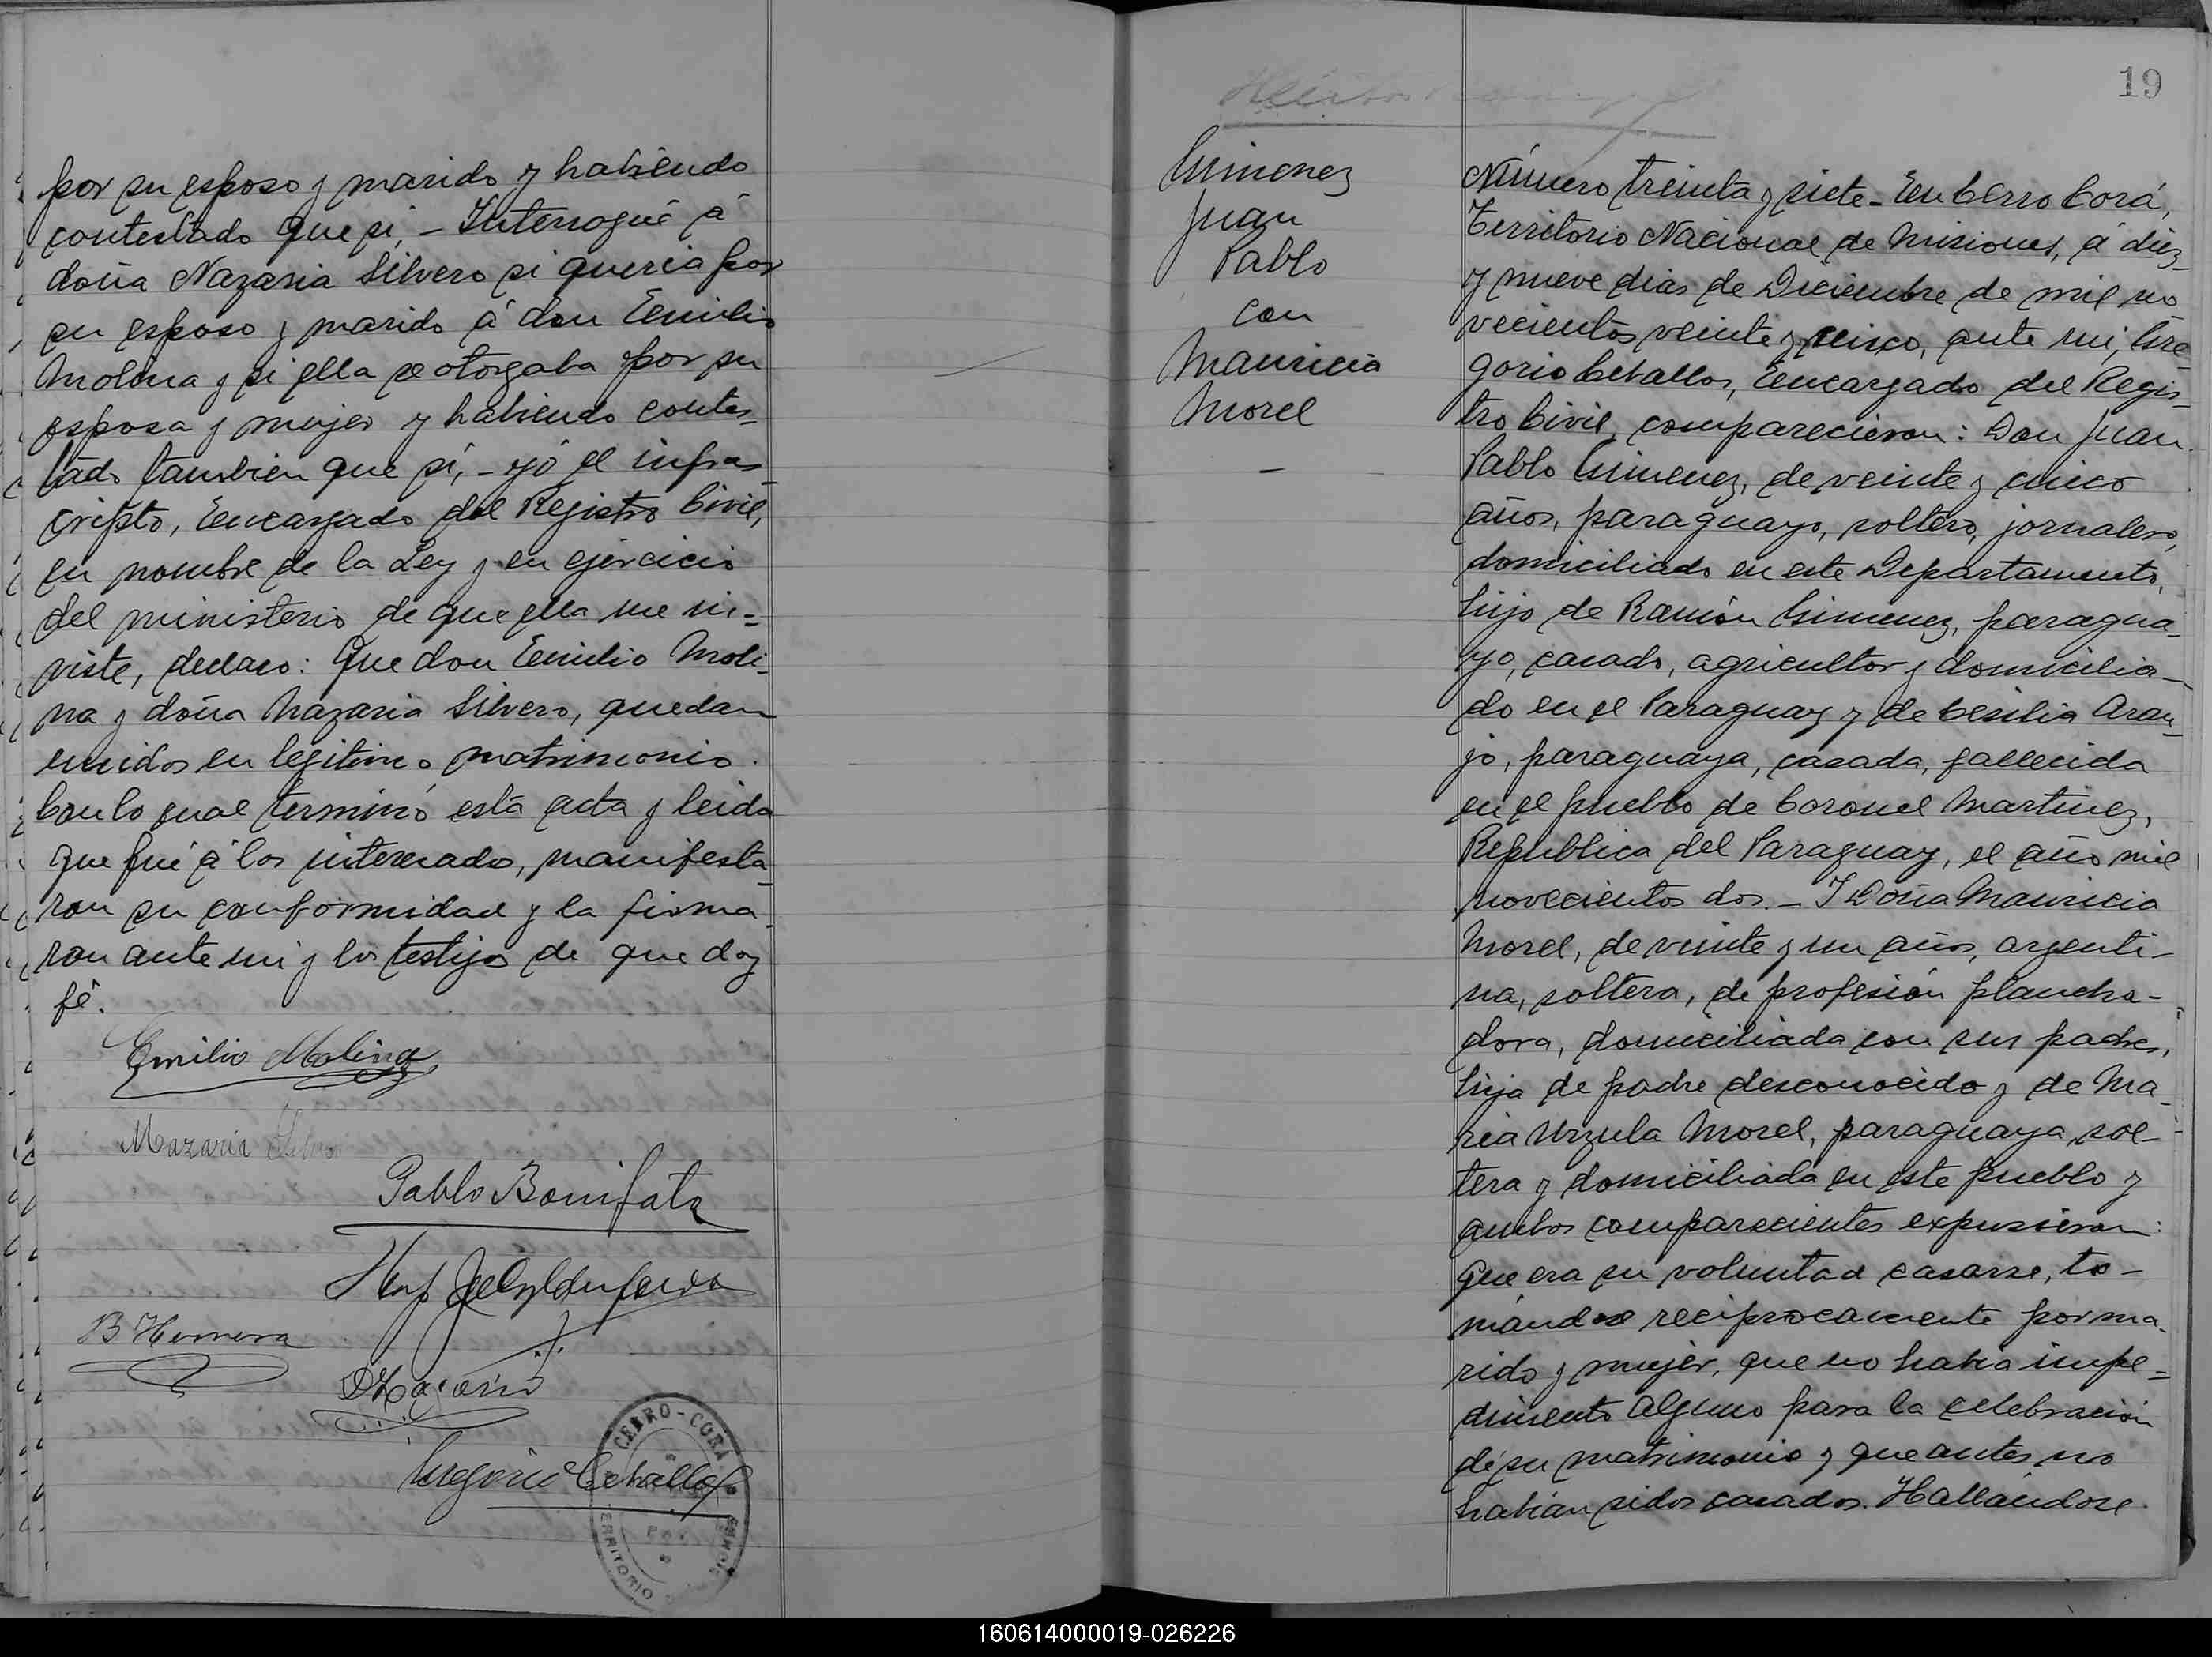 por su esposo y marido y habiendo
contestado que si, - Interrogué á
doña Nazaria Silvero si queria por
su esposo y marido á don Emilio
Molina y si ella se otorgaba por su
esposa y mujer y habiendo contes-
tado tambien que si, - yó el infras-
cripto, Encargado del Registro Civil,
en nombre de la Ley y en ejercicio
del ministerio de que ella me in-
viste, declaro: Que don Emilio Moli-
na y doña Nazaria Silvero, quedan
unidos en legitimo matrimonio.
Con lo cual terminó esta acta y leida
que fué á los interesados, manifesta-
ron su conformidad y la firma-
ron ante mi y los testigos de que doy
fé.
Emilio Molina
Nazaria Silvero
Pablo Bonifato
B Herrera
Gregorio Ceballos
CERRO-CORA
TERRITORIO MISIONES
19
Gimenez
Juan
Pablo
con
Mauricia
Morel
-
Número treinta y siete - En Cerro Corá,
Territorio Nacional de Misiones, á diez
y nueve dias de Diciembre de mil no
vecientos veinte y cinco, ante mi, Gre-
gorio Ceballos, Encargado del Regis-
tro Civil, comparecieron: Don Juan
Pablo Gimenez, de veinte y cinco
años, paraguayo, soltero, jornalero,
domiciliado en este Departamento,
hijo de Ramón Gimenez, paragua-
yo, casado, agricultor y domicilia-
do en el Paraguay y de Cesilia Arau-
jo, paraguaya, casada, fallecida
en el pueblo de Coronel Martinez,
Republica del Paraguay, el año mil
novecientos dos. - Y Doña Mauricia
Morel, de veinte y un años, argenti-
na, soltera, de profesión plancha-
dora, domiciliada con sus padres,
hija de padre desconocido y de Ma-
ria Urzula Morel, paraguaya, sol-
tera y domiciliada en este pueblo y
ambos comparecientes expusieron:
Que era su voluntad casarse, to-
mándose reciprocamente por ma-
rido y mujer, que no habia impe-
dimento alguno para la celebración
de su matrimonio y que antes no
habian sidos casados. Hallándose
160614000019-026226